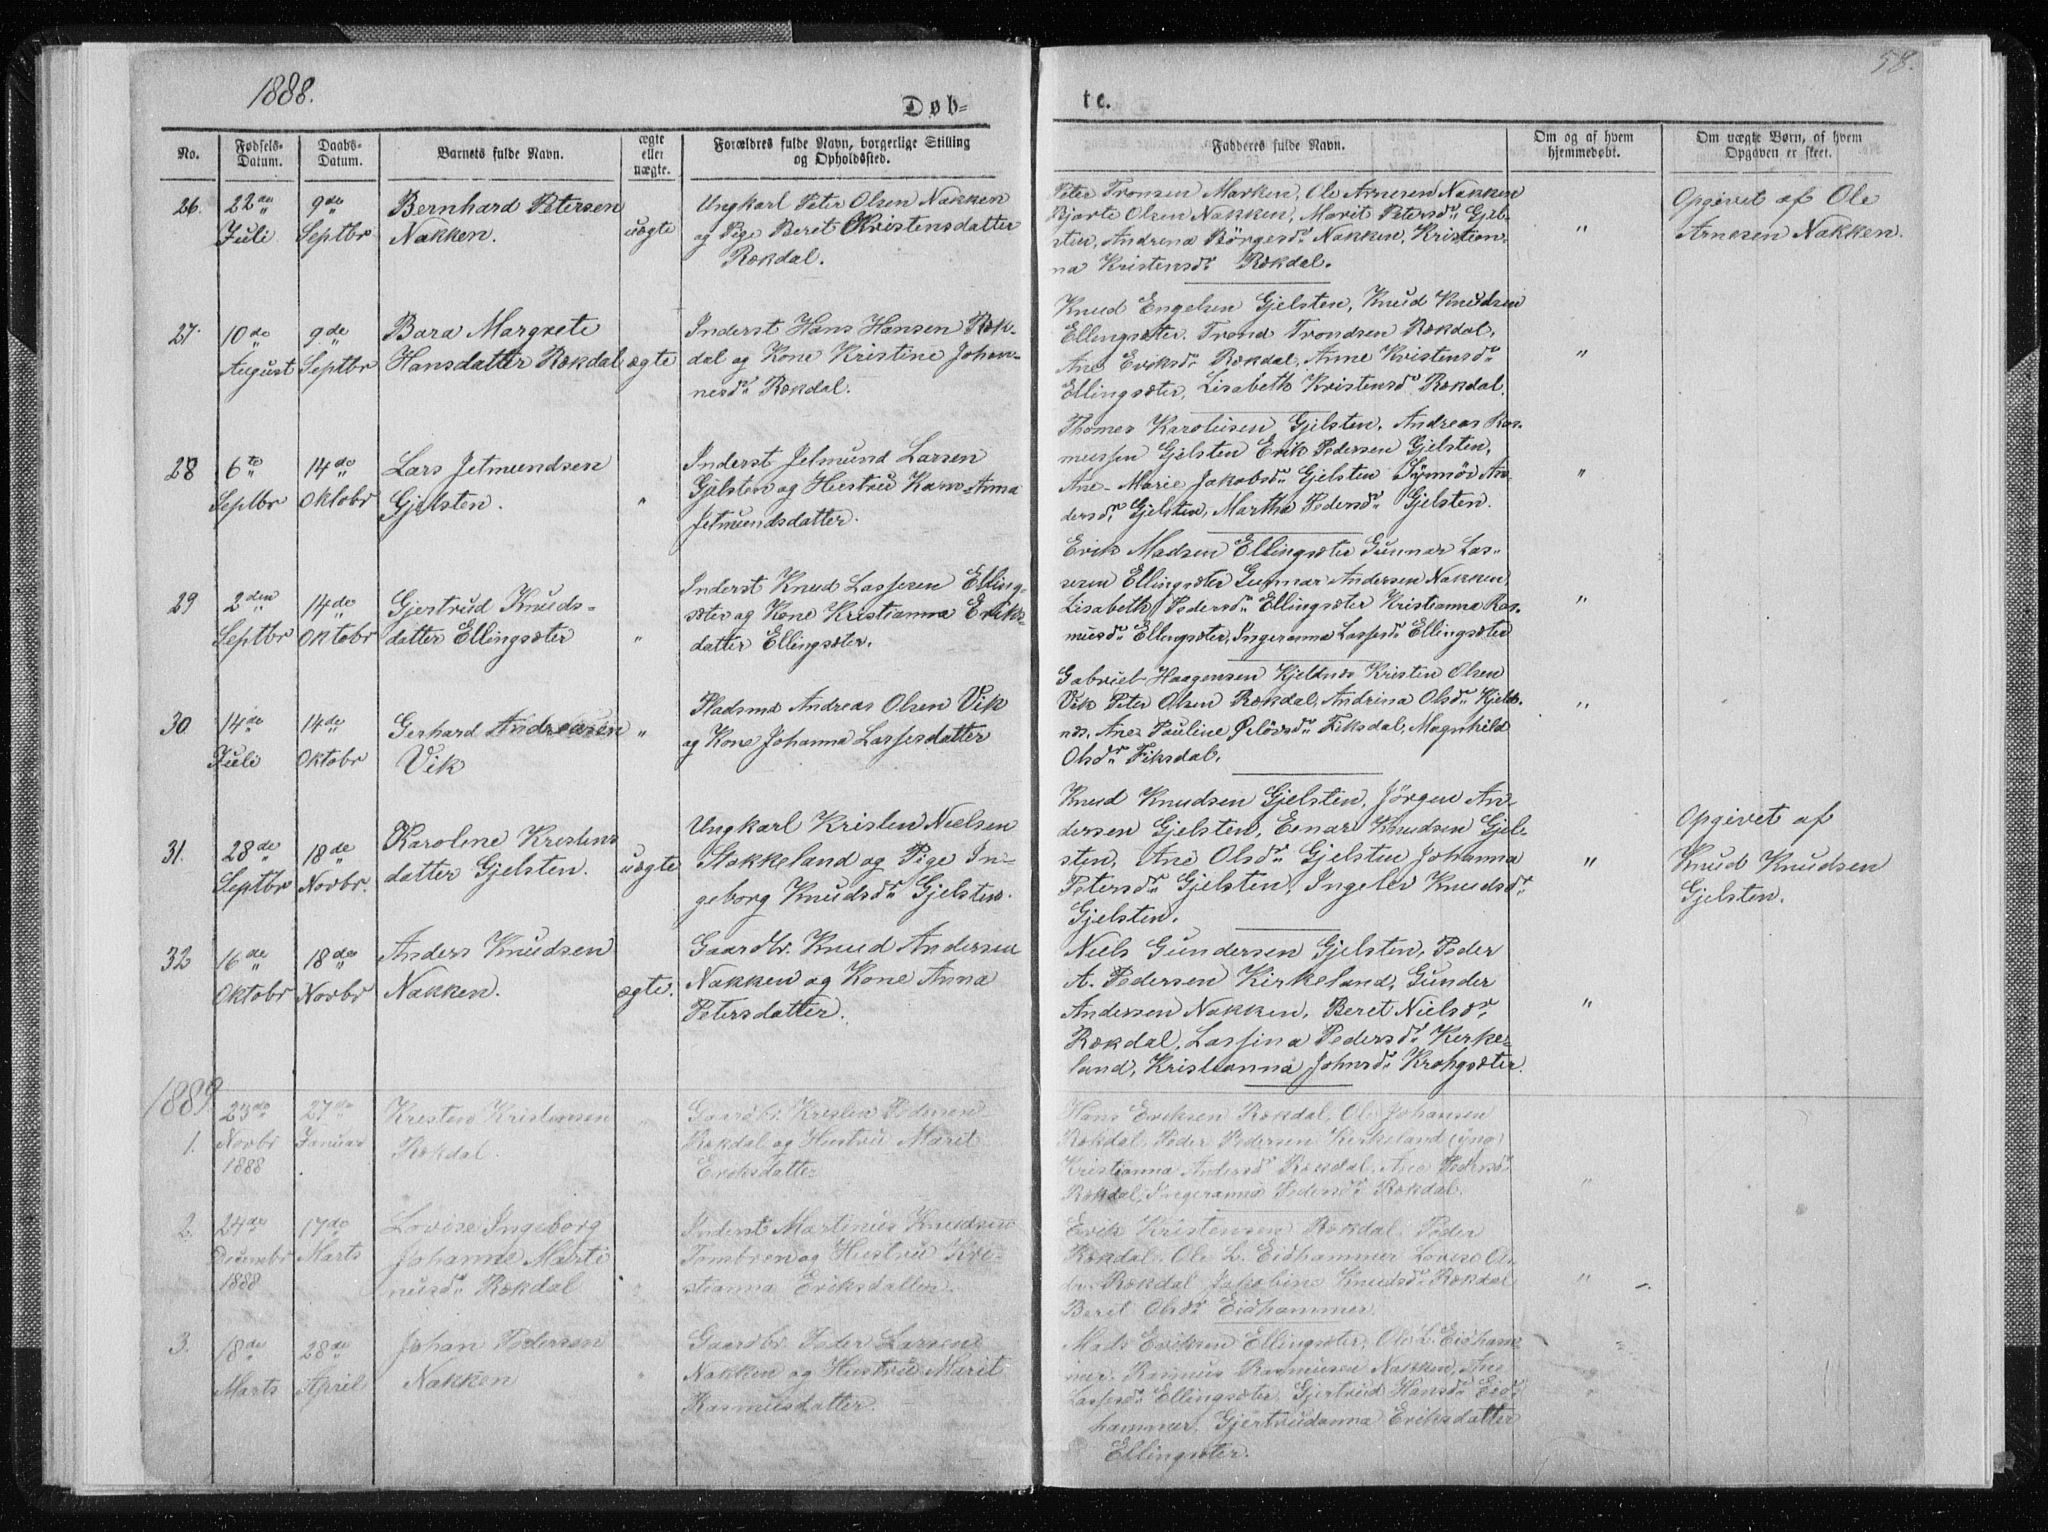 1888.
Døb-
te.
58.
No.
Fødsels-
Datum.
Daabs-
Datum.
Barnets fulde Navn.
ægte
eller
uægte.
Forældres fulde Navn, borgerlige Stilling
og Opholdssted.
Fadderes fulde Navn.
Om og af hvem
hjemmedøbt.
Om uægte Børn, af hvem
Opgaven er skeet.
26.
22de
Juli
9de
Septbr
Bernhard Petersen
Nakken.
uægte
Ungkarl Peter Olsen Nakken
og Pige Beret Kristensdatter
Rækdal.
Peter Tronsen Marken, Ole Arnesen Nakken
Bjarte Olsen Nakken, Marit Petersdr Gjel-
sten, Andrena Börgesdr Nakken, Kristian-
na Kristensdr Rækdal.
"
Opgivet af Ole
Arnesen Nakken.
27.
10de
August
9de
Septbr
Bara Margrete
Hansdatter Rækdal
ægte
Inderst Hans Hansen Ræk-
dal og Kone Kristine Johan-
nesdr Rækdal.
Knud Engelsen Gjelsten, Knud Knudsen
Ellingsæter. Trond Trondsen Rækdal,
Ane Eriksdr Rækdal, Anne Kristensdr
Ellingsæter, Lisabeth Kristensdr Rækdal.
"
28
6te
Septbr
14de
Oktobr
Lars Jetmundsen
Gjelsten.
"
Inderst Jetmund Larsen
Gjelsten og Hustru Karn-Anna
Jetmundsdatter.
Thomas Karolusen Gjelsten, Andreas Ras-
mussen Gjelsten Erik Pedersen Gjelsten,
Ane-Marie Jakobsdr Gjelsten Synnöv An-
dersdr Gjelsten, Martha Pedersdr Gjelsten.
"
29
2den
Septbr
14de
Oktobr
Gjertrud Knuds-
datter Ellingsæter
"
Inderst Knud Lassesen Elling-
sæter og Kone Kristianna Eriks-
datter Ellingsæter.
Erik Madsen Ellingsæter Gunnar Las-
sesen Ellingsæter Gunnar Andersen Nakken,
Lisabeth Pedersdr Ellingsæter Kristianna Ras-
musdr Ellingsæter, Ingeranna Lassesdr Ellingsæter
"
30
14de
Juli
14de
Oktobr
Gerhard Andreasen
Vik
"
Pladsmd Andreas Olsen Vik
og Kone Johanna Lassesdatter
Gabriel Haagensen Kjeldnes Kristen Olsen
Vik Peter Olsen Rækdal, Andrina Olsdr Kjeld-
næs, Ane Pauline Fiksdal, Magnhild
Olsdr Fiksdal.
"
31.
28de
Septbr
18de
Novbr.
Karoline Krestens
datter Gjelsten.
uægte
Ungkarl Kristen Nielsen
Stokkeland og Pige In-
geborg Knudsdr Gjelsten.
Knud Knudsen Gjelsten, Jörgen An-
dersen Gjelsten, Einar Knudsen Gjel-
sten, Ane Olsdr Gjelsten Johanna
Petersdr Gjelsten, Ingelev Knudsdr
Gjelsten.
"
Opgivet af
Knud Knudsen
Gjelsten.
32
16de
Oktobr
18de
Novbr
Anders Knudsen
Nakken.
ægte.
Gaardbr. Knud Andersen
Nakken og Kone Anna
Petersdatter.
Niels Gundersen Gjelsten, Peder
A. Pedersen Kirkeland, Gunder
Andersen Nakken, Beret Nielsdr
Rækdal, Lassina Pedersdr Kerke-
land, Kristianna Johnsdr Krohgsæter.
"
1889
1.
23de
Novbr
1888
27de
Januar
Kresten Kristensen
Rækdal.
"
Gaardbr. Kresten Pedersen
Rækdal og Hustru Marit
Eriksdatter
Hans Eriksen Rækdal, Ole Johansen
Rækdal, Peder Pedersen Kerkeland (yng)
Kristianna Andersdr Rækdal, Ane Pedersdr
Rækdal, Ingeranna Pedersdr Rækdal.
"
2.
24de
Decembr
1888
17de
Marts
Lovise Ingeborg
Johanne Marti
nusdr Rækdal
"
Inderst Martinus Knudsen
Tombren og Hustru Kri-
stianna Eriksdatter.
Erik Kristensen Rækdal Peder
Rækdal, Ole L. Eidhammer Lovise
Rækdal Jakobine Knudsdr Rækdal
Beret Olsdr Eidhammer.
"
3.
18de
Marts
28de
April
Johan Pedersen
Nakken
"
Gaardbr. Peder Larsen
Nakken og Hustru Marit
Rasmusdatter.
Mads Eriksen Ellingsæter, Ole L. Eidham
mer, Rasmus Rasmusen Nakken, Ane
Lassesdr Ellingsæter, Gjertrud Hansdr Eid-
hammer, Gjertrudanna Eriksdatter
Ellingsæter.
"